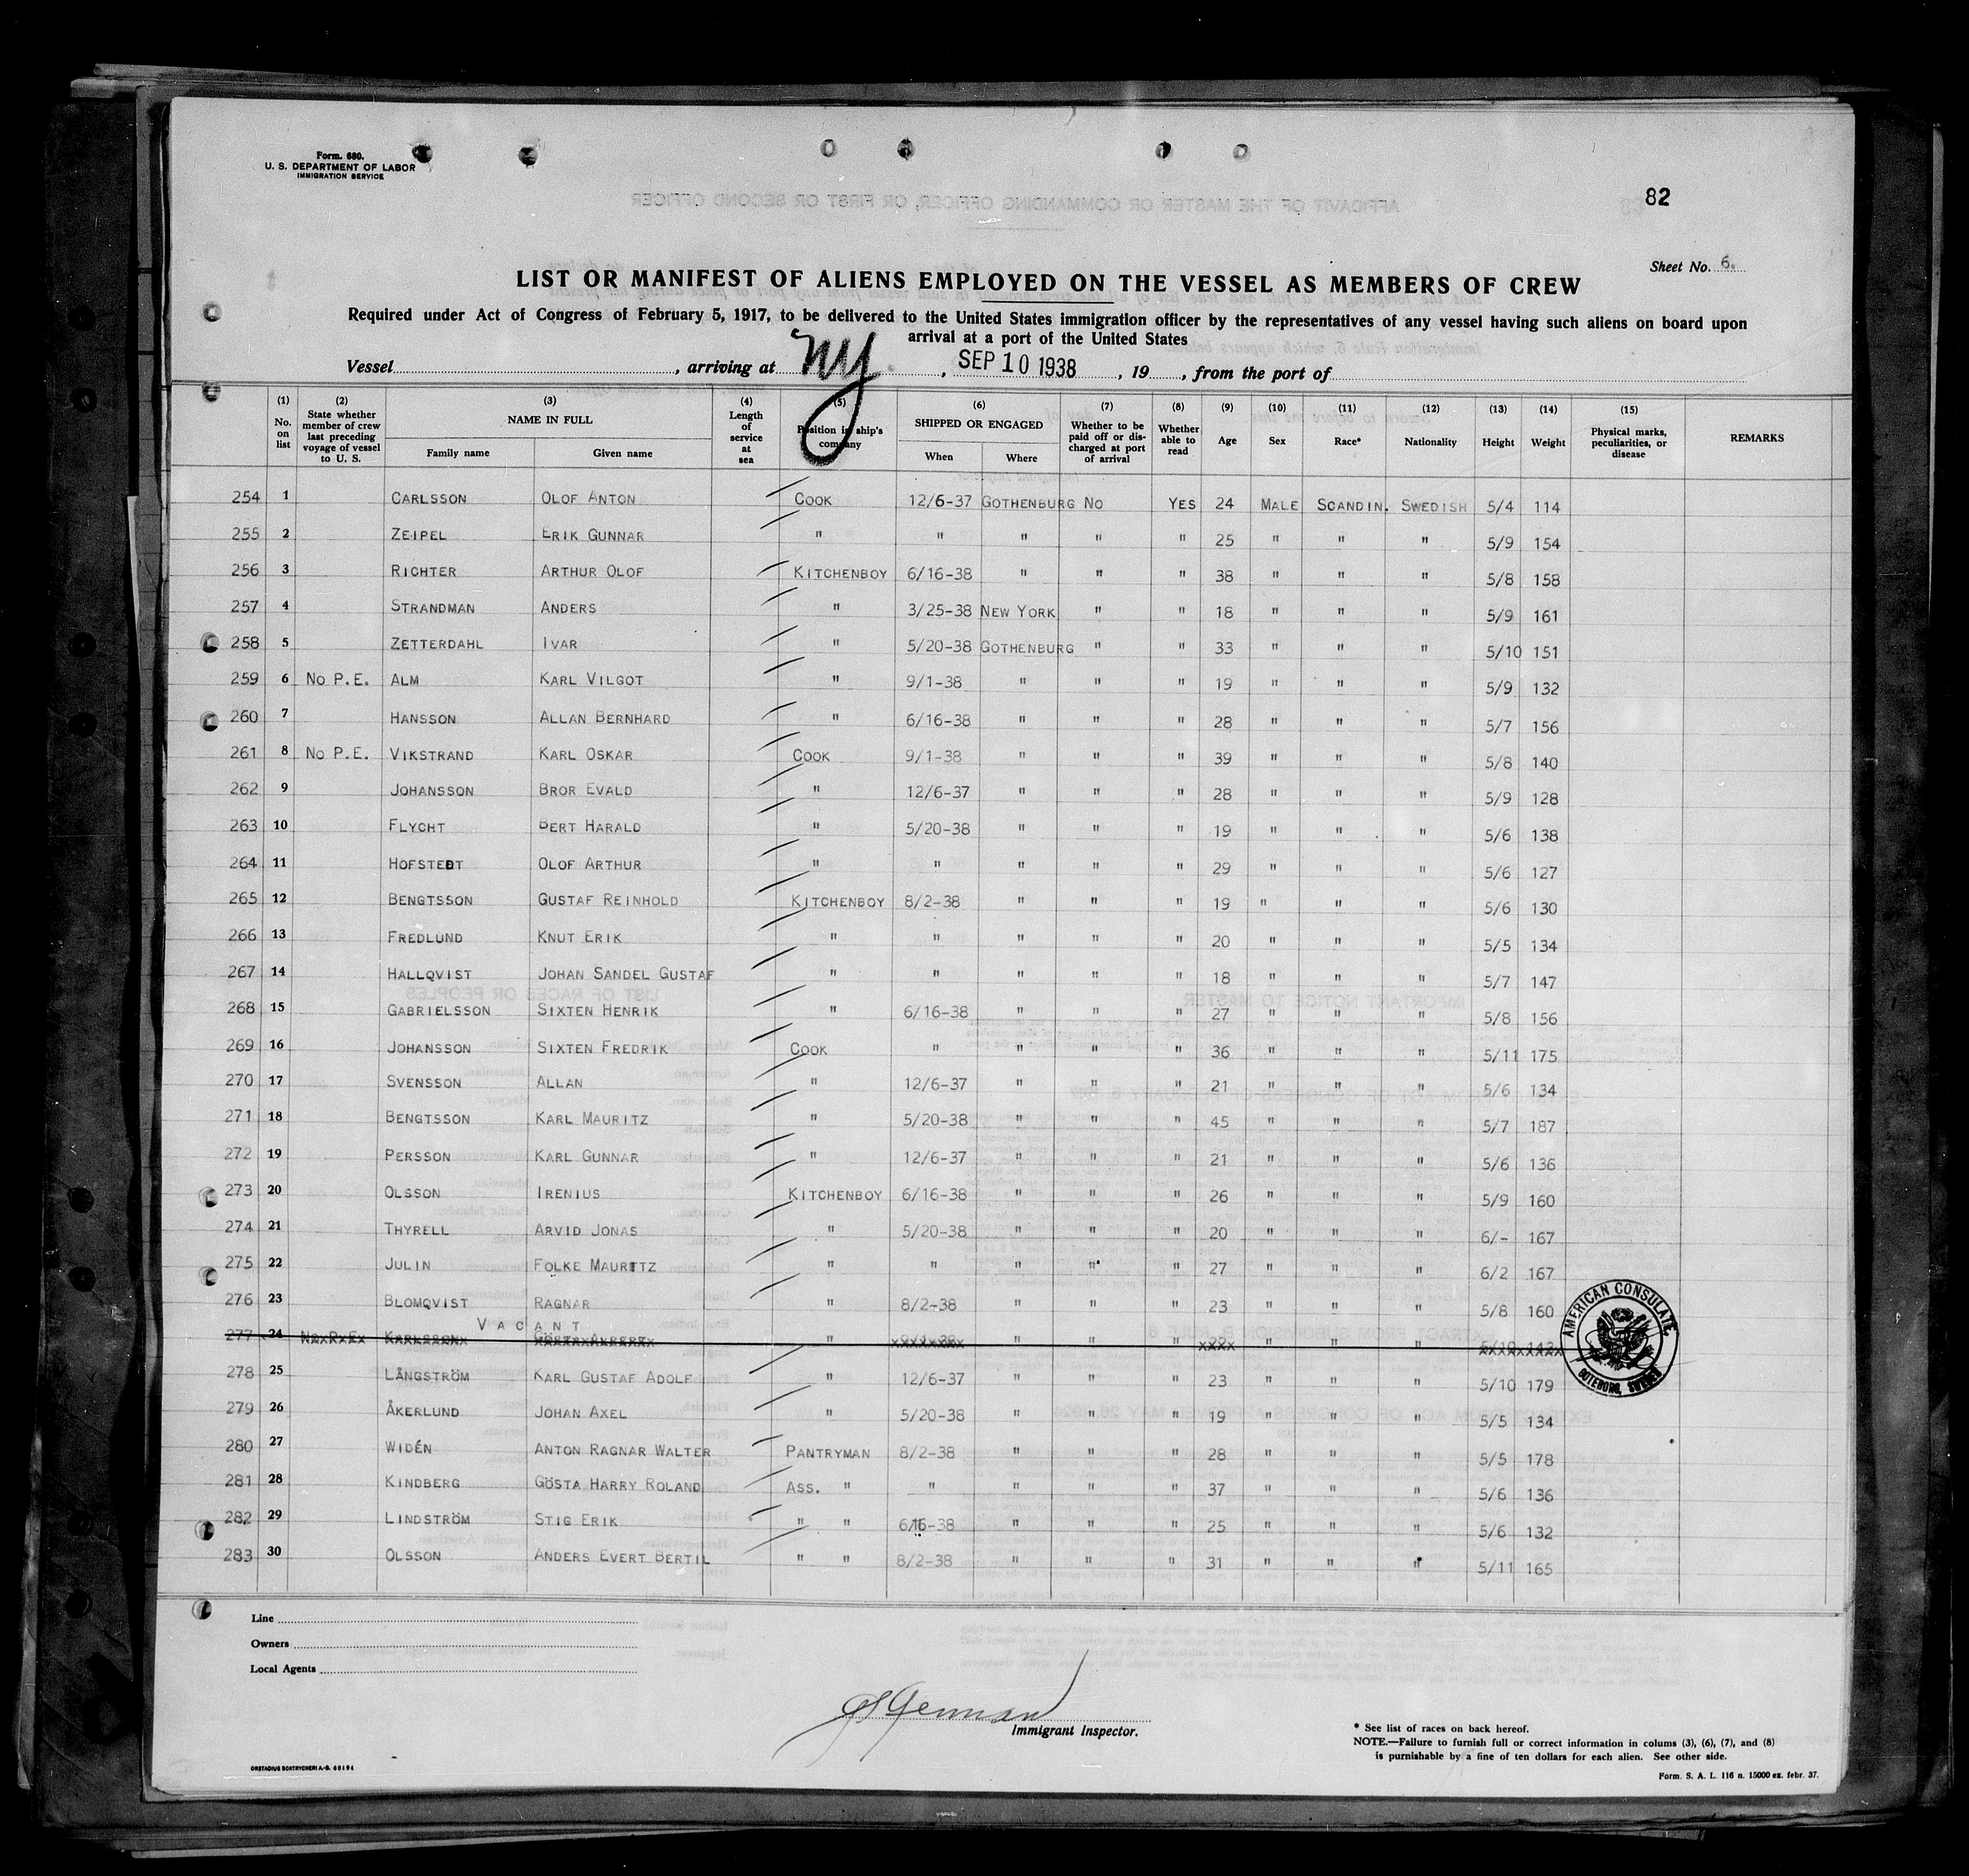 Form. 680.
U. S. DEPARTMENT OF LABOR
IMMIGRATION SERVICE
82
Sheet No. 6.
LIST OR MANIFEST OF ALIENS EMPLOYED ON THE VESSEL AS MEMBERS OF CREW
Required under Act of Congress of February 5, 1917, to be delivered to the United States immigration officer by the representatives of any vessel having such aliens on board upon
arrival at a port of the United States
Vessel , arriving at NY , SEP 10 1938 , 19 , from the port of
(1) No. on list (2) State whether member of crew last preceding voyage of vessel to U. S. (3) NAME IN FULL Family name Given name (4) Length of service at sea (5) Position in ship's company (6) SHIPPED OR ENGAGED When Where (7) Whether to be paid off or discharged at port of arrival (8) Whether able to read (9) Age (10) Sex (11) Race* (12) Nationality (13) Height (14) Weight (15) Physical marks, peculiarities, or disease REMARKS
254 1 CARLSSON OLOF ANTON COOK 12/6-37 GOTHENBURG NO YES 24 MALE SCANDIN. SWEDISH 5/4 114
255 2 ZEIPEL ERIK GUNNAR " " " " " 25 " " " 5/9 154
256 3 RICHTER ARTHUR OLOF KITCHENBOY 6/16-38 " " " 38 " " " 5/8 158
257 4 STRANDMAN ANDERS " 3/25-38 NEW YORK " " 18 " " " 5/9 161
258 5 ZETTERDAHL IVAR " 5/20-38 GOTHENBURG " " 33 " " " 5/10 151
259 6 NO P.E. ALM KARL VILGOT " 9/1-38 " " " 19 " " " 5/9 132
260 7 HANSSON ALLAN BERNHARD " 6/16-38 " " " 28 " " " 5/7 156
261 8 NO P.E. VIKSTRAND KARL OSKAR COOK 9/1-38 " " " 39 " " " 5/8 140
262 9 JOHANSSON BROR EVALD " 12/6-37 " " " 28 " " " 5/9 128
263 10 FLYCHT BERT HARALD " 5/20-38 " " " 19 " " " 5/6 138
264 11 HOFSTEDT OLOF ARTHUR " " " " " 29 " " " 5/6 127
265 12 BENGTSSON GUSTAF REINHOLD KITCHENBOY 8/2-38 " " " 19 " " " 5/6 130
266 13 FREDLUND KNUT ERIK " " " " " 20 " " " 5/5 134
267 14 HALLQVIST JOHAN SANDEL GUSTAF " " " " " 18 " " " 5/7 147
268 15 GABRIELSSON SIXTEN HENRIK " 6/16-38 " " " 27 " " " 5/8 156
269 16 JOHANSSON SIXTEN FREDRIK COOK " " " " 36 " " " 5/11 175
270 17 SVENSSON ALLAN " 12/6-37 " " " 21 " " " 5/6 134
271 18 BENGTSSON KARL MAURITZ " 5/20-38 " " " 45 " " " 5/7 187
272 19 PERSSON KARL GUNNAR " 12/6-37 " " " 21 " " " 5/6 136
273 20 OLSSON IRENIUS KITCHENBOY 6/16-38 " " " 26 " " " 5/9 160
274 21 THYRELL ARVID JONAS " 5/20-38 " " " 20 " " " 6/- 167
275 22 JULIN FOLKE MAURITZ " " " " " 27 " " " 6/2 167
276 23 BLOMQVIST RAGNAR " 8/2-38 " " " 23 " " " 5/8 160
VACANT
277 24 " " " " " " "
278 25 LÅNGSTRÖM KARL GUSTAF ADOLF " 12/6-37 " " " 23 " " " 5/10 179
279 26 ÅKERLUND JOHAN AXEL " 5/20-38 " " " 19 " " " 5/5 134
280 27 WIDÉN ANTON RAGNAR WALTER PANTRYMAN 8/2-38 " " " 28 " " " 5/5 178
281 28 KINDBERG GÖSTA HARRY ROLAND ASS. " " " " " 37 " " " 5/6 136
282 29 LINDSTRÖM STIG ERIK " " 6/16-38 " " " 25 " " " 5/6 132
283 30 OLSSON ANDERS EVERT BERTIL " " 8/2-38 " " " 31 " " " 5/11 165
AMERICAN CONSULATE
GOTEBORG, SWEDEN
Line
Owners
Local Agents
Immigrant Inspector.
* See list of races on back hereof.
NOTE.—Failure to furnish full or correct information in colums (3), (6), (7), and (8)
is punishable by a fine of ten dollars for each alien. See other side.
Form. S. A. L. 116 n. 15000 ex. febr. 37.